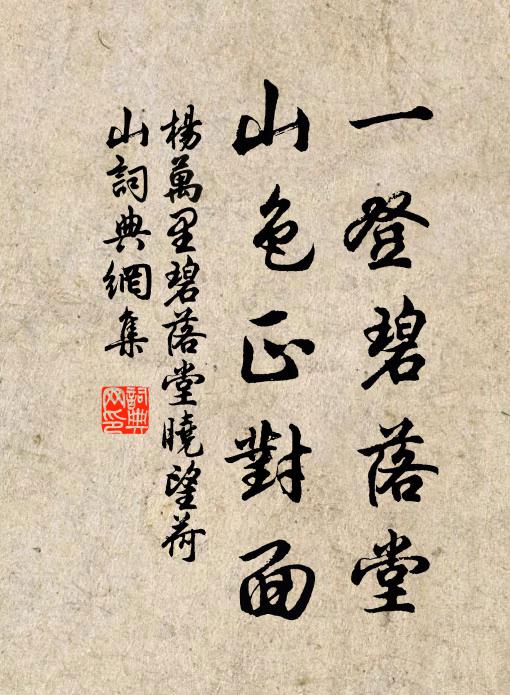 一登碧落堂
山色正對面
楊萬里碧落堂曉望荷
山詞典網集
詞典网印